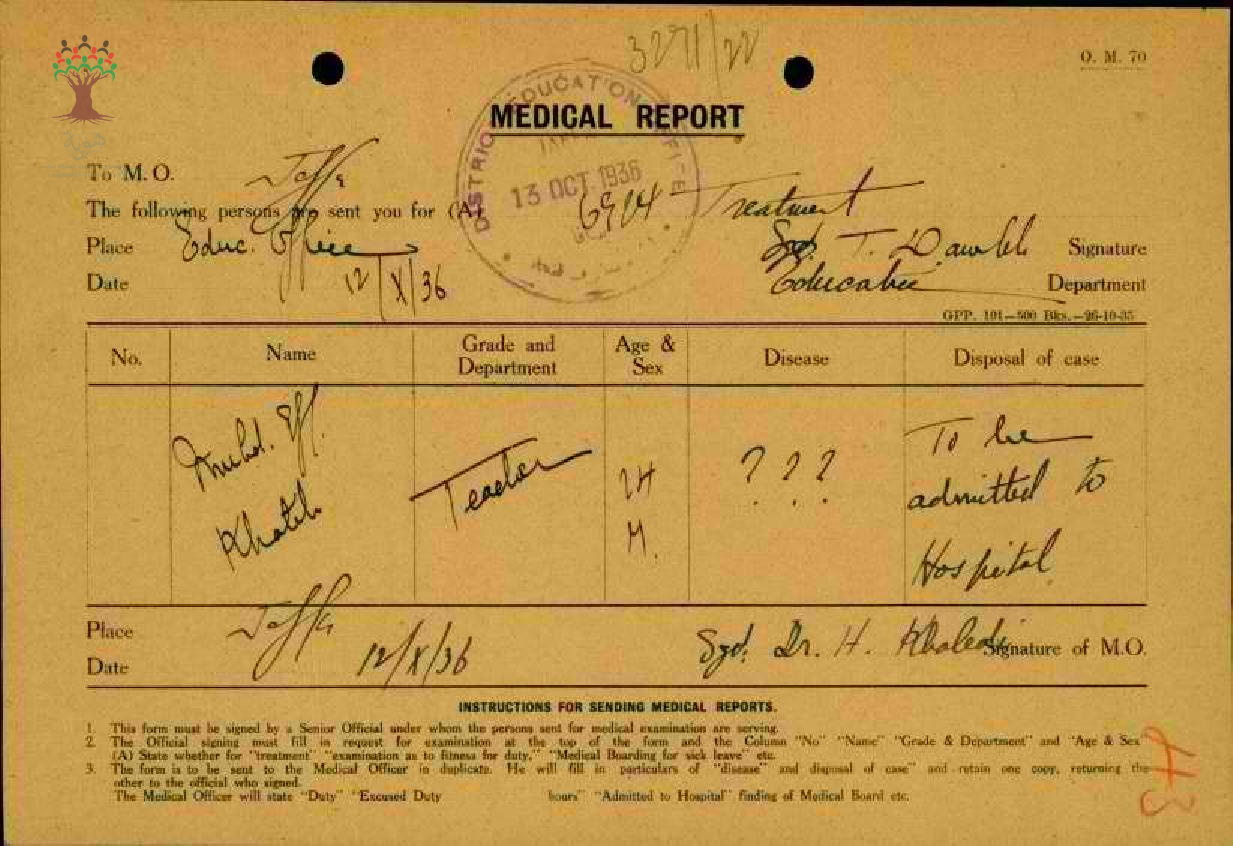 3271/22
O. M. 70
MEDICAL REPORT
DISTRICT EDUCATION OFFICE
13 OCT. 1936
To M. O. Jaffa
The following persons are sent you for (A) Treatment
Place Educ. Office Sgd. T. Signature
Date 12/X/36 Education Department
GPP. 101—500 Bks.—26-10-35
No. Name Grade and Department Age & Sex Disease Disposal of case
Muhd. Eff. Khatib Teacher 24 M. ? ? ? To be admitted to Hospital
Place Jaffa
Date 12/X/36 Sgd. Dr. H. Khaledi Signature of M.O.
INSTRUCTIONS FOR SENDING MEDICAL REPORTS.
1. This form must be signed by a Senior Official under whom the persons sent for medical examination are serving.
2. The Official signing must fill in request for examination at the top of the form and the Column "No" "Name" "Grade & Department" and "Age & Sex"
(A) State whether for "treatment" "examination as to fitness for duty," "Medical Boarding for sick leave" etc.
3. The form is to be sent to the Medical Officer in duplicate. He will fill in particulars of "disease" and disposal of case" and retain one copy, returning the
other to the official who signed.
The Medical Officer will state "Duty" "Excused Duty hours" "Admitted to Hospital" finding of Medical Board etc.
43